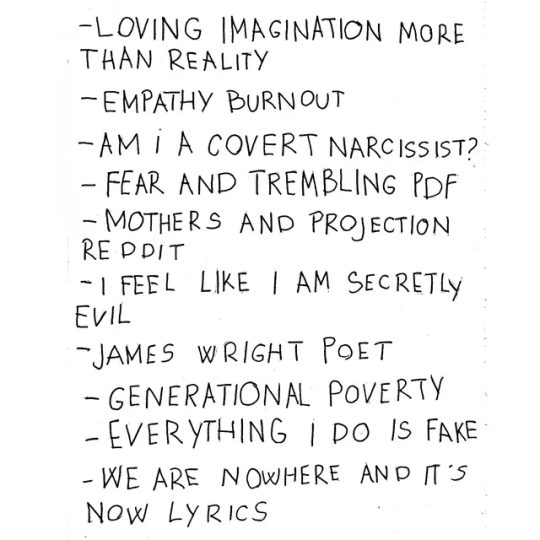 -LOVING IMAGINATION MORE
THAN REALITY
-EMPATHY BURNOUT
-AM i A COVERT NARCISSIST?
- FEAR AND TREMBLING PDF
- MOTHERS AND PROJECTION
REDDIT
- I FEEL LIKE I AM SECRETLY
EVIL
-JAMES WRIGHT POET
- GENERATIONAL POVERTY
- EVERYTHING I DO IS FAKE
- WE ARE NOWHERE AND IT'S
NOW LYRICS